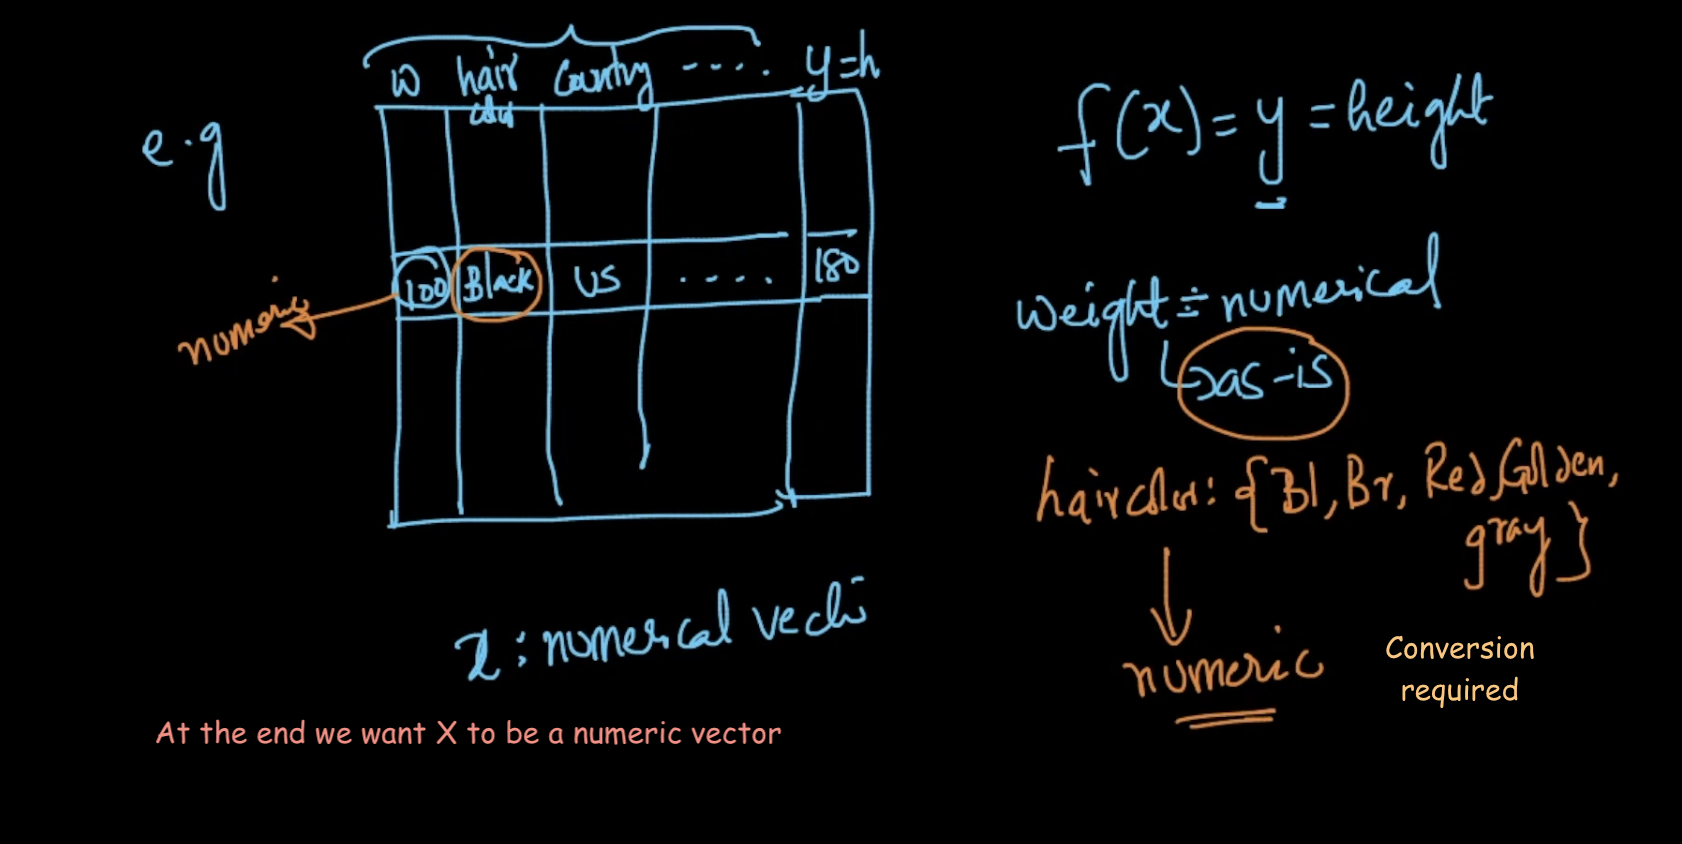 w hair Country ---- y=h
color
e.g
100 Black US .... 180
numeric
x : numerical vecto
At the end we want X to be a numeric vector
f(x) = y = height
weight ÷ numerical
as-is
haircolor: {Bl, Br, Red, Golden,
gray}
numeric
Conversion
required